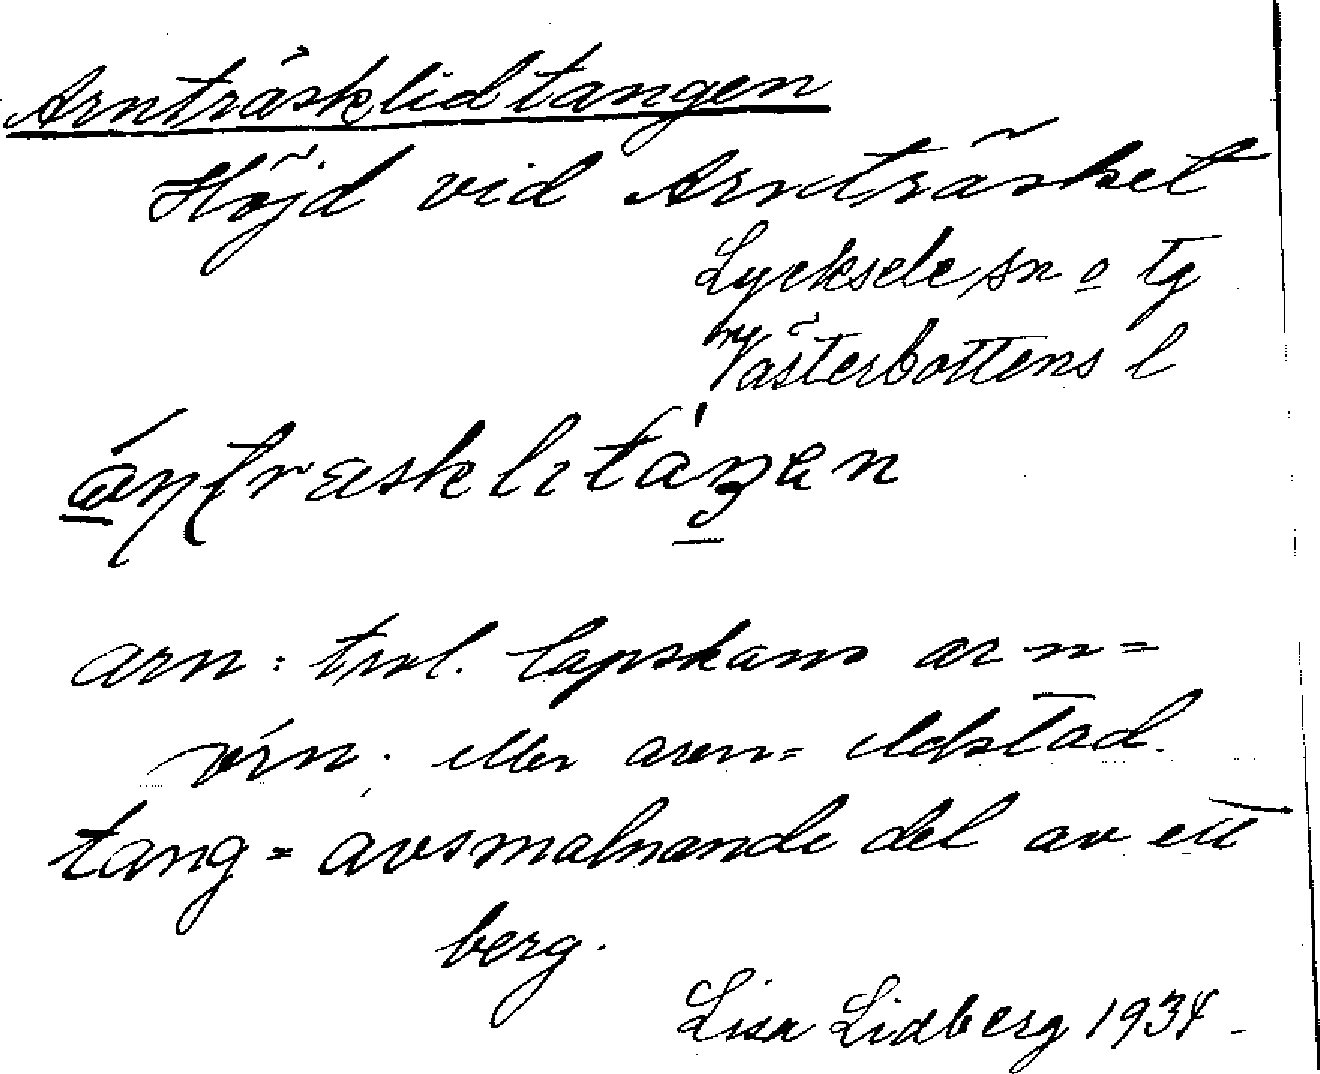 Arnträsklidtangen
Höjd vid Arnträsket
Lycksele sn o tg
Västerbottens l
arn: trol. lapskans arn=
örn. eller aren= eldstad.
tang = avsmalnande del av ett
berg.
Lisa Lidberg 1934